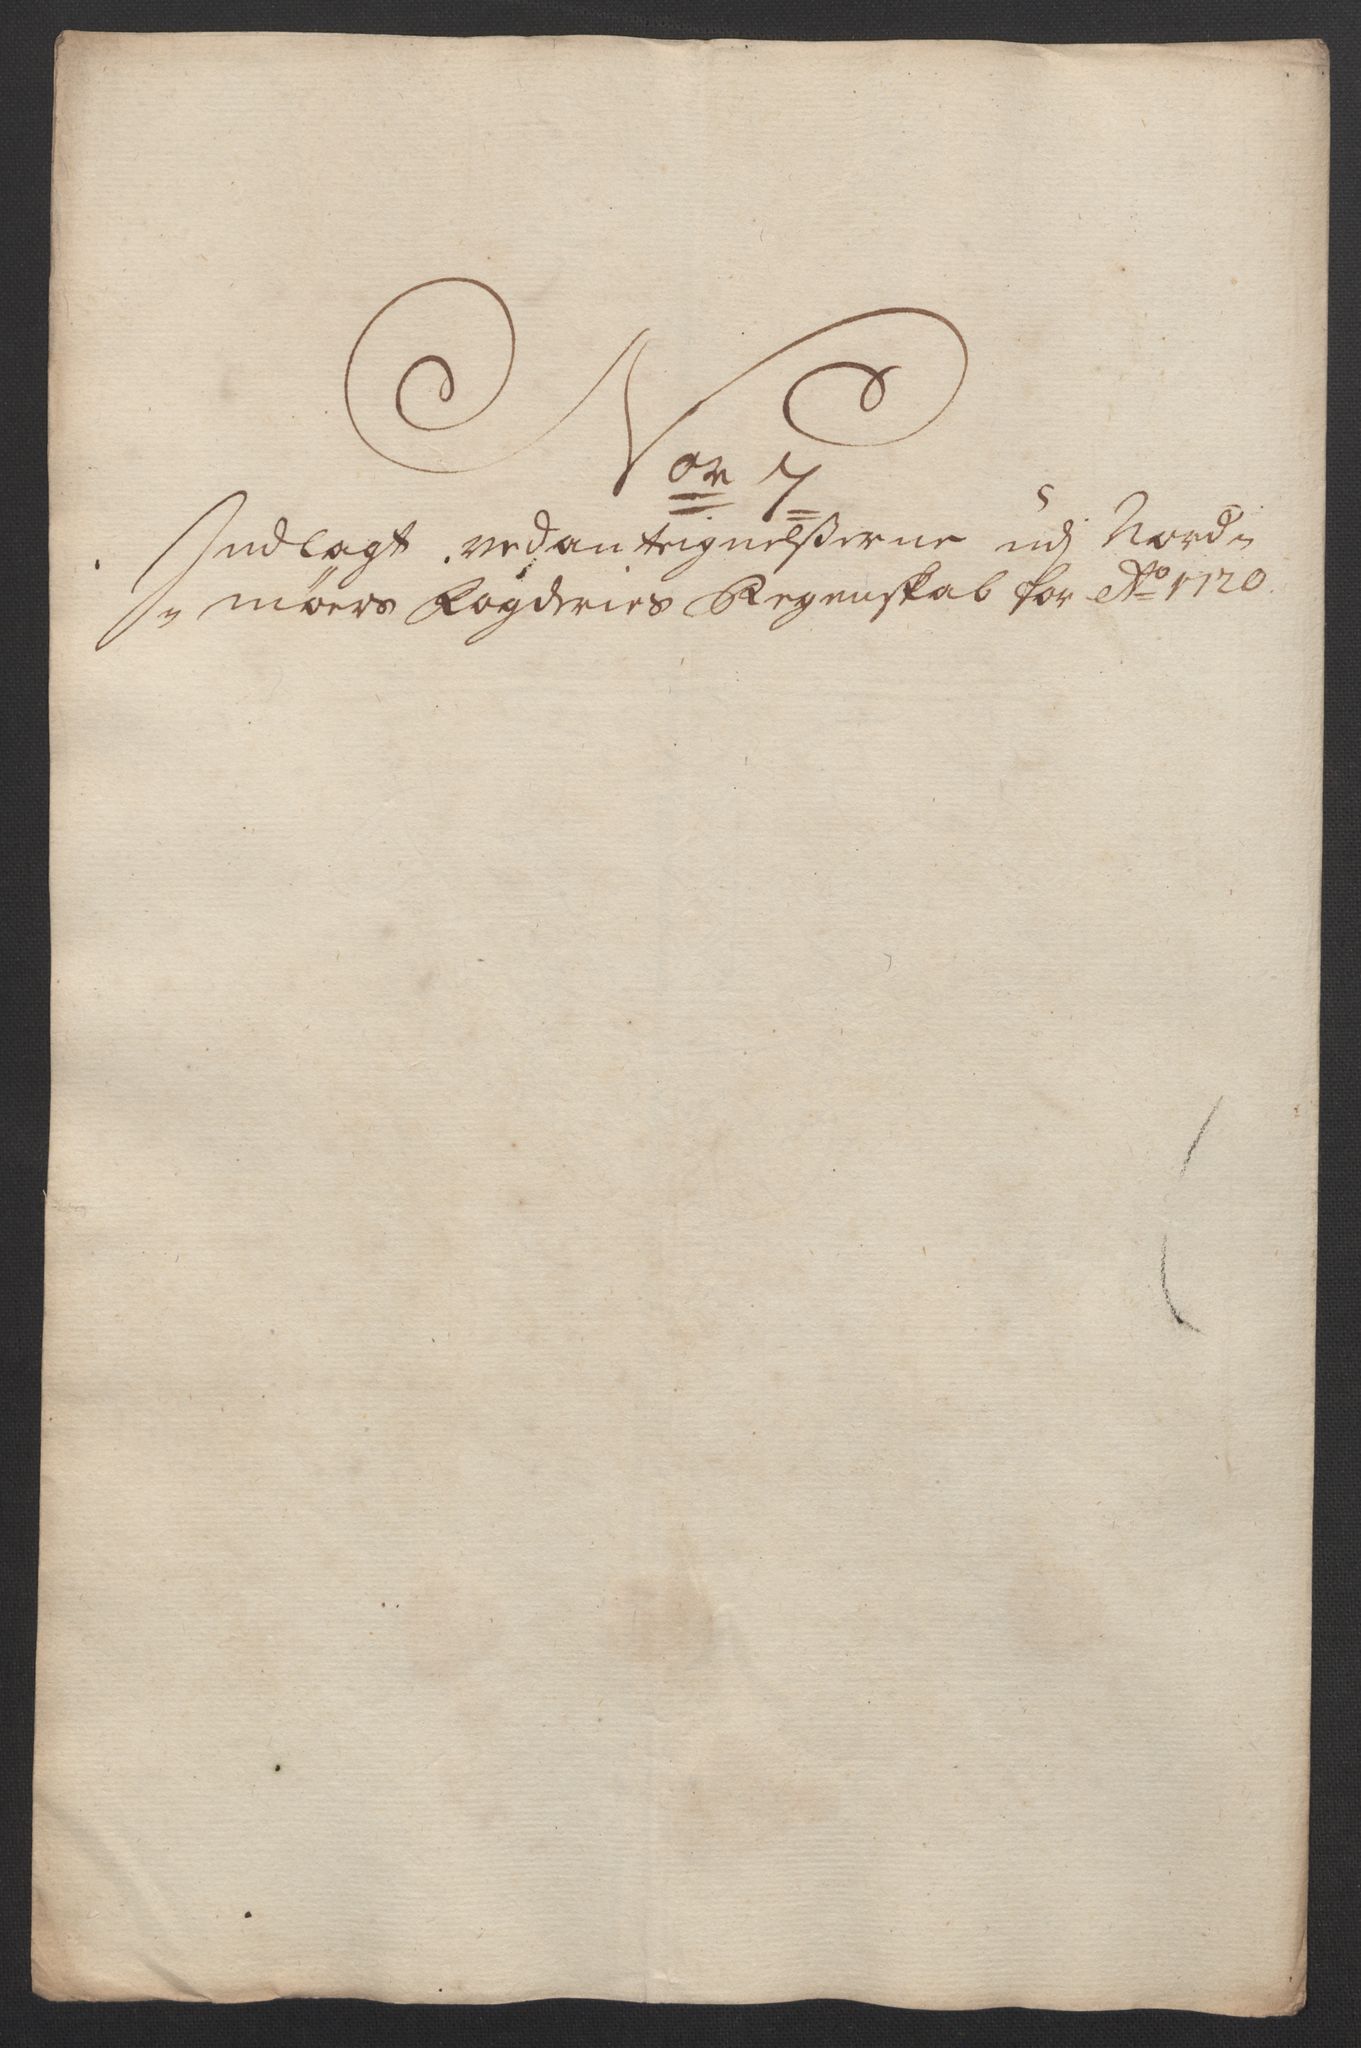 Nor 7
Indlagt ved antegnelßerne udj Nord-
-möers Fogderies Regenskab for Ao 1720.